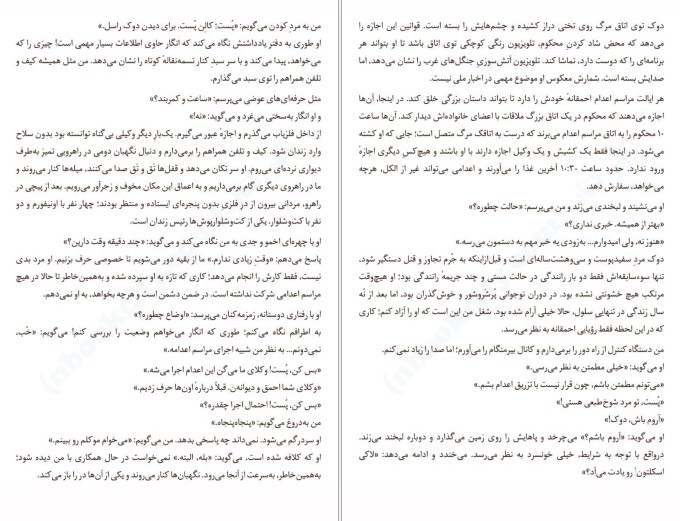 من به مردِ کودن می‌گویم: «پُست؛ کالِن پُست. برای دیدن دوک راسل.»
او طوری به دفتر یادداشتش نگاه می‌کند که انگار حاوی اطلاعات بسیار مهمی است! چیزی را که
می‌خواهد، پیدا می‌کند و با سر سبدِ کنار تسمه‌نقالهٔ کوتاه را نشان می‌دهد. من مثل همیشه کیف و
تلفن همراهم را توی سبد می‌گذارم.
مثل حرفه‌ای‌های عوضی می‌پرسم: «ساعت و کمربند؟»
و او انگار به‌سختی می‌غرد و می‌گوید: «نه!»
از داخل فلزیاب می‌گذرم و اجازهٔ عبور می‌گیرم. یک‌بارِ دیگر وکیلی بی‌گناه توانسته بود بدون سلاح
وارد زندان شود. کیف و تلفن همراهم را برمی‌دارم و دنبال نگهبان دومی در راهرویی تمیز به‌طرف
دیواری نرده‌ای می‌روم. او سر تکان می‌دهد و قفل‌ها تَق و تَق صدا می‌کنند، میله‌ها کنار می‌روند و
ما در راهروی دیگری گام برمی‌داریم و به اعماق این مکان مخوف و زجرآور می‌رویم. بعد از پیچی در
راهرو، مردانی بیرون از درِ فلزیِ بدون پنجره‌ای ایستاده و منتظر بودند؛ چهار نفر با اونیفورم و دو
نفر با کت‌وشلوار. یکی از کت‌وشلوارپوش‌ها رئیس زندان است.
او با چهره‌ای اخمو و جدی به من نگاه می‌کند و می‌گوید: «چند دقیقه وقت دارین؟»
پاسخ می‌دهم: «وقتِ زیادی ندارم.» ما از بقیه دور می‌شویم تا خصوصی حرف بزنیم. او مرد بدی
نیست، فقط کارش را انجام می‌دهد؛ کاری که تازه به او سپرده شده و به‌همین‌خاطر تا حالا در هیچ
مراسم اعدامی شرکت نداشته است. در ضمن دشمن است و هرچه بخواهد، به او نمی‌دهم.
او با رفتاری دوستانه، زمزمه‌کنان می‌پرسد: «اوضاع چطوره؟»
به اطرافم نگاه می‌کنم؛ طوری که انگار می‌خواهم وضعیت را بررسی کنم! می‌گویم: «خُب،
نمی‌دونم... به نظر من شبیه اجرای مراسم اعدامه.»
«بس کن، پُست! وکلای ما می‌گن این اعدام اجرا می‌شه.»
«وکلای شما احمق و دیوانه‌ن. قبلاً دربارهٔ اون‌ها حرف زدیم.»
«بس کن، پُست! احتمال اجرا چقدره؟»
من به‌دروغ می‌گویم: «پنجاه‌پنجاه.»
او سردرگم می‌شود. نمی‌داند چه پاسخی بدهد. من می‌گویم: «می‌خوام موکلم رو ببینم.»
او که کلافه شده است، می‌گوید: «بله، البته.» نمی‌خواست در حال همکاری با من دیده شود؛
به‌همین‌خاطر، به‌سرعت از آنجا می‌رود. نگهبان‌ها کنار می‌روند و یکی از آن‌ها در را باز می‌کند.
دوک توی اتاق مرگ روی تختی دراز کشیده و چشم‌هایش را بسته است. قوانین این اجازه را
می‌دهد که محض شاد کردن محکوم، تلویزیون رنگی کوچکی توی اتاق باشد تا او بتواند هر
برنامه‌ای را که دوست دارد، تماشا کند. تلویزیون آتش‌سوزیِ جنگل‌های غرب را نشان می‌دهد، اما
صدایش بسته است. شمارش معکوس او موضوع مهمی در اخبار ملی نیست.
هر ایالت مراسم اعدام احمقانهٔ خودش را دارد تا بتواند داستان بزرگی خلق کند. در اینجا، آن‌ها
اجازه می‌دهند که محکوم در یک اتاق بزرگ ملاقات با اعضای خانواده‌اش دیدار کند. آن‌ها ساعت
۱۰ محکوم را به اتاق مراسم اعدام می‌برند که درست به اتاقک مرگ متصل است؛ جایی که او کشته
می‌شود. در اینجا فقط یک کشیش و یک وکیل اجازه دارند با او باشند و هیچ‌کس دیگری اجازهٔ
ورود ندارد. حدود ساعت ۱۰:۳۰ آخرین غذا را می‌آورند و اعدامی می‌تواند غیر از الکل، هرچه
می‌خواهد، سفارش دهد.
او می‌نشیند و لبخندی می‌زند و من می‌پرسم: «حالت چطوره؟»
«بهتر از همیشه. خبری نداری؟»
«هنوز نه، ولی امیدوارم... به‌زودی یه خبر مهم به دستمون می‌رسه.»
دوک مردِ سفیدپوست و سی‌وهشت‌ساله‌ای است و قبل‌ازاینکه به جُرم تجاوز و قتل دستگیر شود،
تنها سوءسابقه‌اش فقط دو بار رانندگی در حالت مستی و چند جریمهٔ رانندگی بود؛ او هیچ‌وقت
مرتکب هیچ خشونتی نشده بود. در دوران نوجوانی پُرشروشور و خوش‌گذران بود، اما بعد از نُه
سال زندگی در تنهاییِ سلول، حالا خیلی آرام شده بود. شغل من این است که او را آزاد کنم؛ کاری
که در این لحظه فقط رؤیایی احمقانه به نظر می‌رسد.
من دستگاه کنترل از راه دور را برمی‌دارم و کانال بیرمنگام را می‌آورم؛ اما صدا را زیاد نمی‌کنم.
او می‌گوید: «خیلی مطمئن به نظر می‌رسی.»
«می‌تونم مطمئن باشم، چون قرار نیست با تزریق اعدام بشم.»
«پُست، تو مرد شوخ‌طبعی هستی!»
«آروم باش، دوک!»
او می‌گوید: «آروم باشم؟» می‌چرخد و پاهایش را روی زمین می‌گذارد و دوباره لبخند می‌زند.
درواقع با توجه به شرایط، خیلی خونسرد به نظر می‌رسد. می‌خندد و ادامه می‌دهد: «لاکی
اسکلتون! رو یادت می‌آد؟»